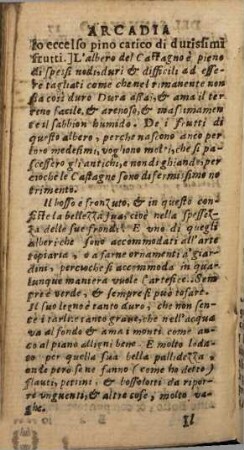 ARCADIA
lo eccelso pino carico di durissimi
frutti.] L'albero del Castagno è pieno
di spessi nodi duri & difficili ad es-
sere tagliati come che nel rimanente non
sia così duro Dura assai, & ama il ter
reno facile, & arenoso, & massimamen
te il sabbion humido. De i frutti di
questo albero, perche nascono anco per
loro medesimi, vogliono molti, che si pa
scessero gli antichi, e non di ghiande; per
cioche le Castagne sono di fermissimo no
trimento.
Il bosso è fronzuto, & in questo con
siste la bellezza sua, cioè nella spessez-
za delle sue frondi. E uno di quegli
alberi che sono accommodati all'arte
topiaria, o a far ne ornamenti a' giar
dini, percioche si accommoda in qua-
lunque maniera vuole l'artefice. Sem
pre è verde, & sempre si può tosare.
Il suo legno è tanto duro, che non sen
te i tarli: tanto graue, che nell'acqua
va al fondo & ama i monti come an
co al piano alligni bene. E molto loda-
to per quella sua bella pallidezza,
onde però se ne fanno (come ho detto)
flauti, pettini, & bossolotti da ripor
re vnguenti, & altre cose, molto va-
ghe.
Il